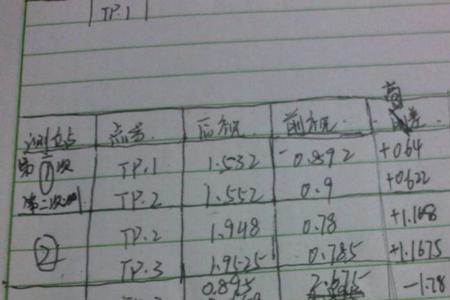 TP.1
测立点 点号 后方尺 前方尺 高差
第①次 TP.1 1.532 0.892 +0.64
第二次测 TP.2 1.552 0.9 +0.622
② TP.2 1.948 0.78 +1.168
TP.3 1.9525 0.785 +1.1675
0.895 2.675 -1.78